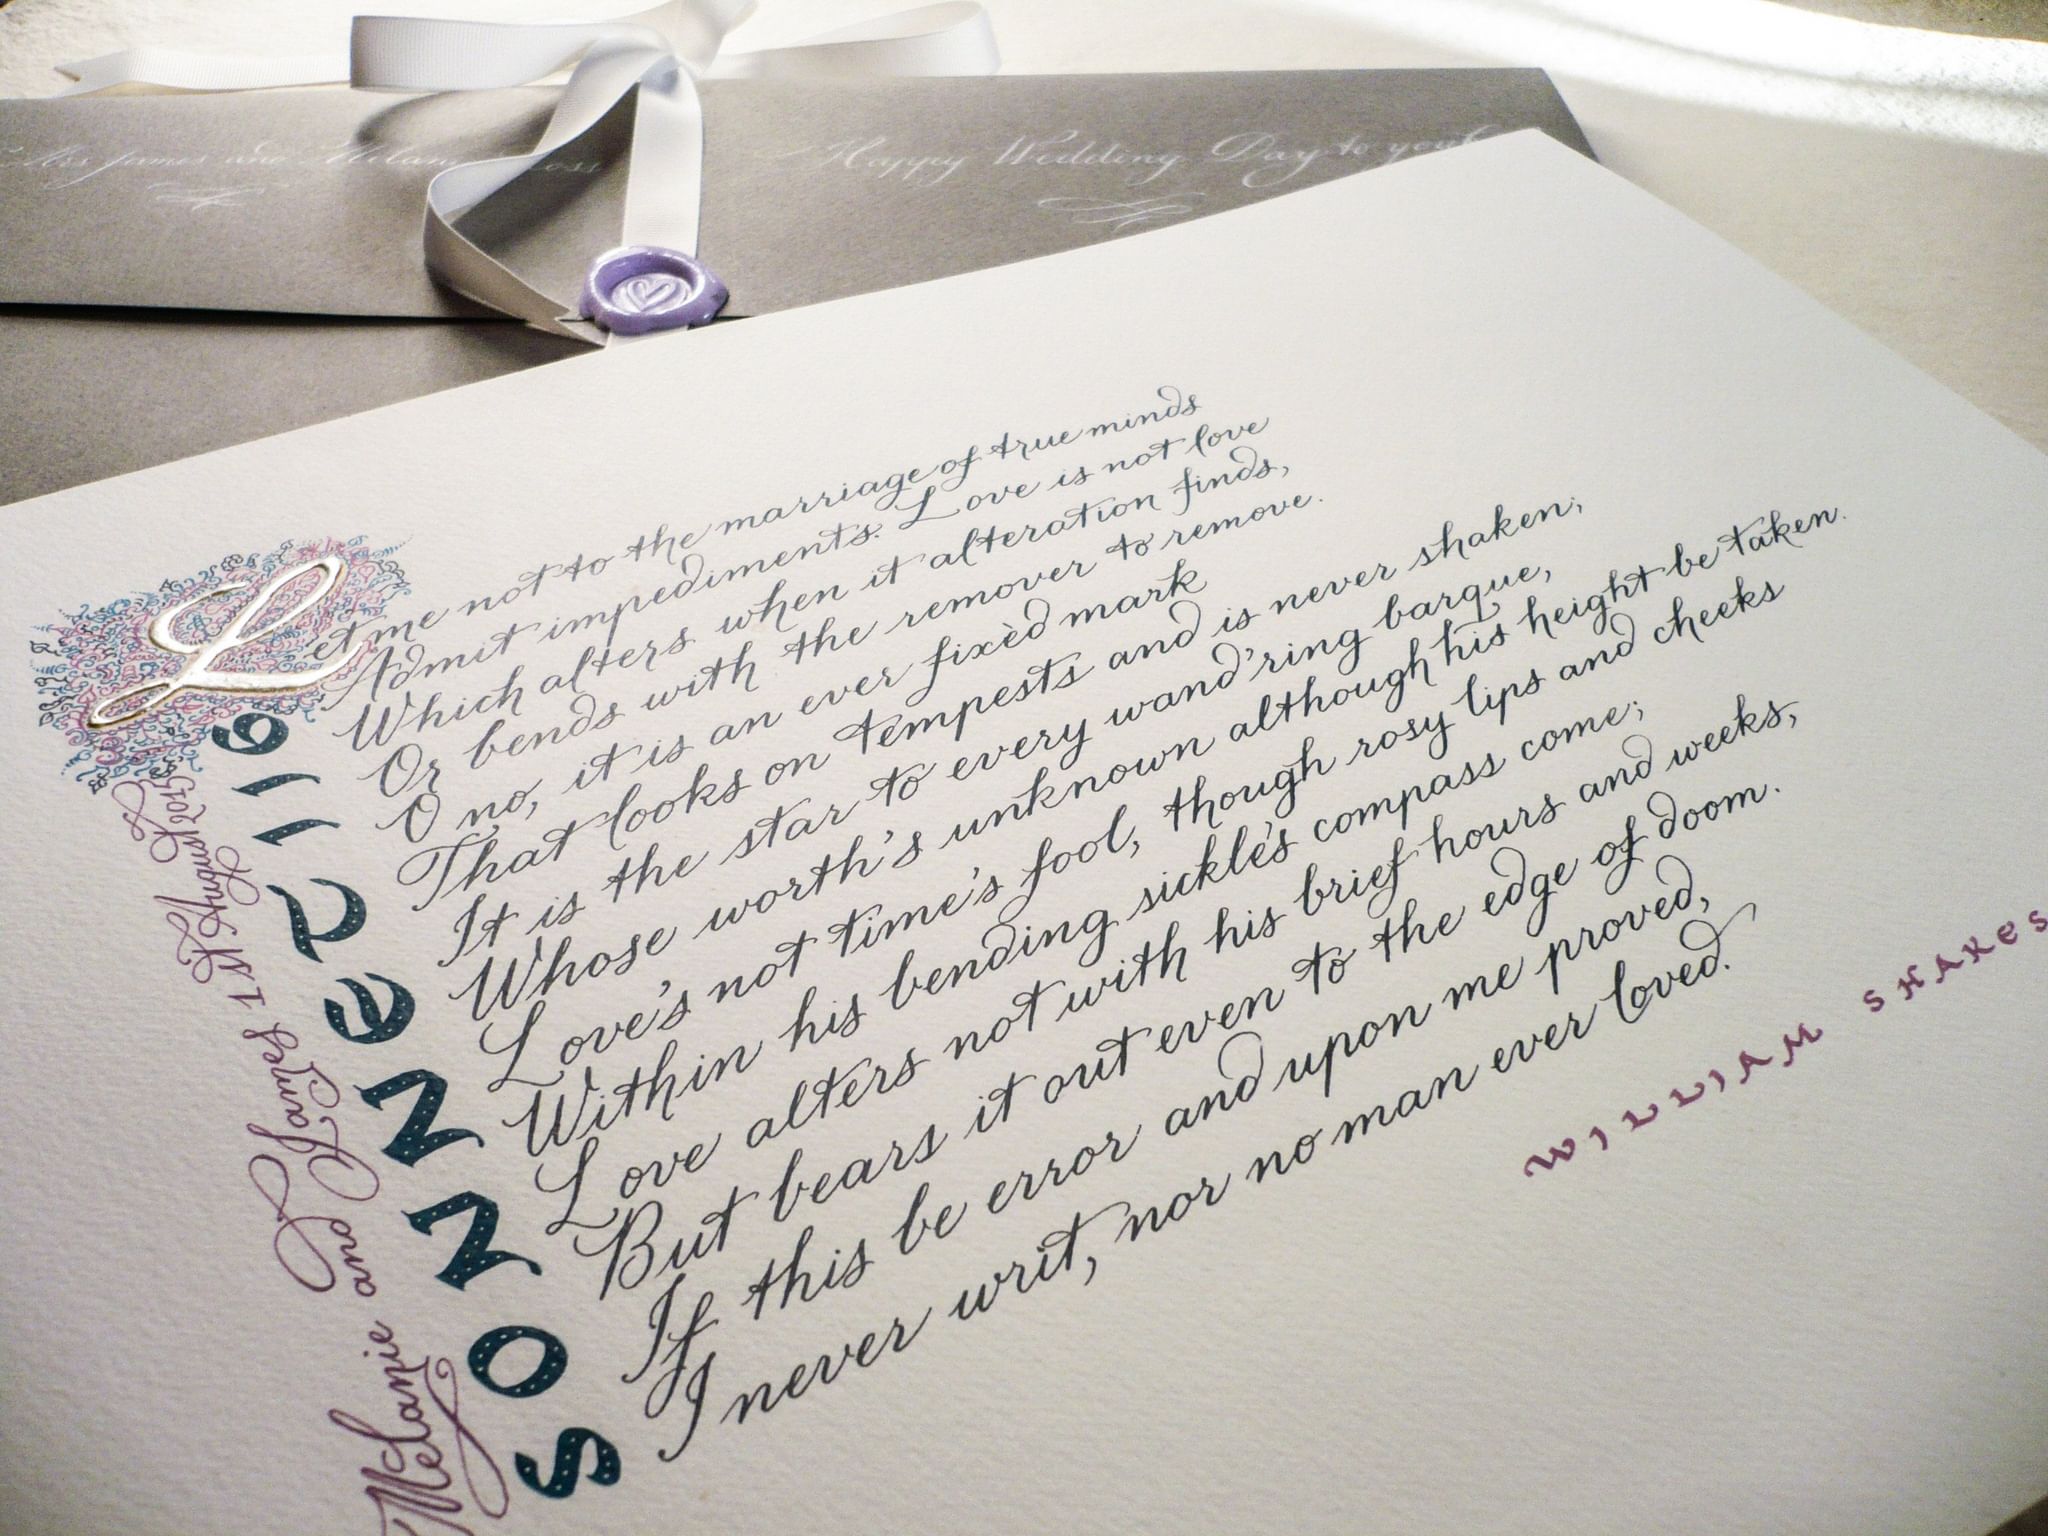 Mrs James and Melanie
Happy Wedding Day to you
Let me not to the marriage of true minds
Admit impediments. Love is not love
Which alters when it alteration finds,
Or bends with the remover to remove.
O no, it is an ever fixèd mark
That looks on tempests and is never shaken;
It is the star to every wand'ring barque,
Whose worth's unknown although his height be taken.
Love's not time's fool, though rosy lips and cheeks
Within his bending sickle's compass come;
Love alters not with his brief hours and weeks,
But bears it out even to the edge of doom.
If this be error and upon me proved,
I never writ, nor no man ever loved.
WILLIAM SHAKES
SONNET 116
Melanie and James 1st August 2015